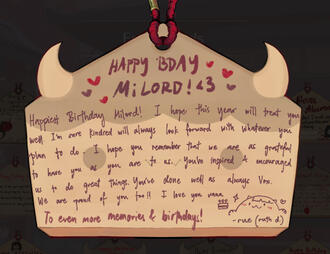 HAPPY BDAY
MiLORD! <3
Happiest Birthday Milord! I hope this year will treat you
well. I'm sure kindred will always look forward with whatever you
plan to do. I hope you remember that we are as grateful
to have you as you are to us. You've inspired & encouraged
us to do great things. You've done well as always Vox.
We are proud of you too!! I love you
To even more memories & birthdays!
-rue (ruth d)